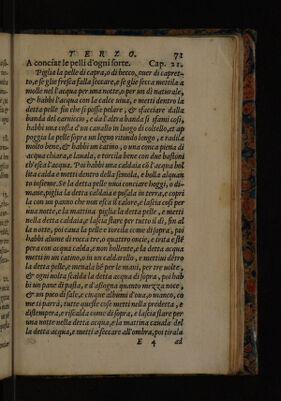 TERZO. 72
A conciar le pelli d'ogni sorte. Cap. 21.
Piglia la pelle di capra, o di becco, over di capret-
to, e se glie fresca falla seccare, e se glie secca mettila a
molle nel l'acqua per una notte, o per un dì naturale,
& habbi l'acqua con la calce viva, e metti dentro la
detta pelle sin che si possa pelare, & sfacciare dalla
banda del carniccio, e da l'altra banda si sfami così,
habbi una costa d'un cavallo in luogo di coltello, et ap
poggia la pelle sopra un legno ritondo longo, e radila
molto bene, & habbi un catino, o una conca piena di
acqua chiara, e lavala, e torcila bene con due bastoni
ch'esca l'acqua. Poi habbi una caldaia cō l'acqua bol
lita calda e metti dentro della semola, e bolla alquan
to insieme. Se la detta pelle vuoi conciare hoggi, o di-
mane, piglia la detta caldaia e posala in terra, e copri
la con un panno che non esca il calore, e lascia così per
una notte, e la mattina piglia la detta pelle, e metti
nella detta caldaia, e lascia stare per tutto il dì, fin al
la notte, poi cava la pelle e torcila come di sopra, poi
habbi alume di rocca tre, o quattro oncie, e trita e stē
pera con acqua calda, e non bollente, e la detta acqua
metti in un catino, o in un caldarello, e mettivi dētro
la detta pelle, e menala bē per le mani, per tre volte,
& ogni volta scalda la detta acqua di sopra, poi hab-
bi un pane di pasta, e d'assogna quanto mezza noce,
& un poco di sale, e cinque albumi d'ova, o manco, co
me ti parrà, tutte queste cose metti nella predetta, e
distempera, e riscalda come di sopra, e lascia stare per
una notte nella detta acqua, e la mattina cavala del
la detta acqua, e metti a seccare all'ombra, poi tirala
E 4 ad